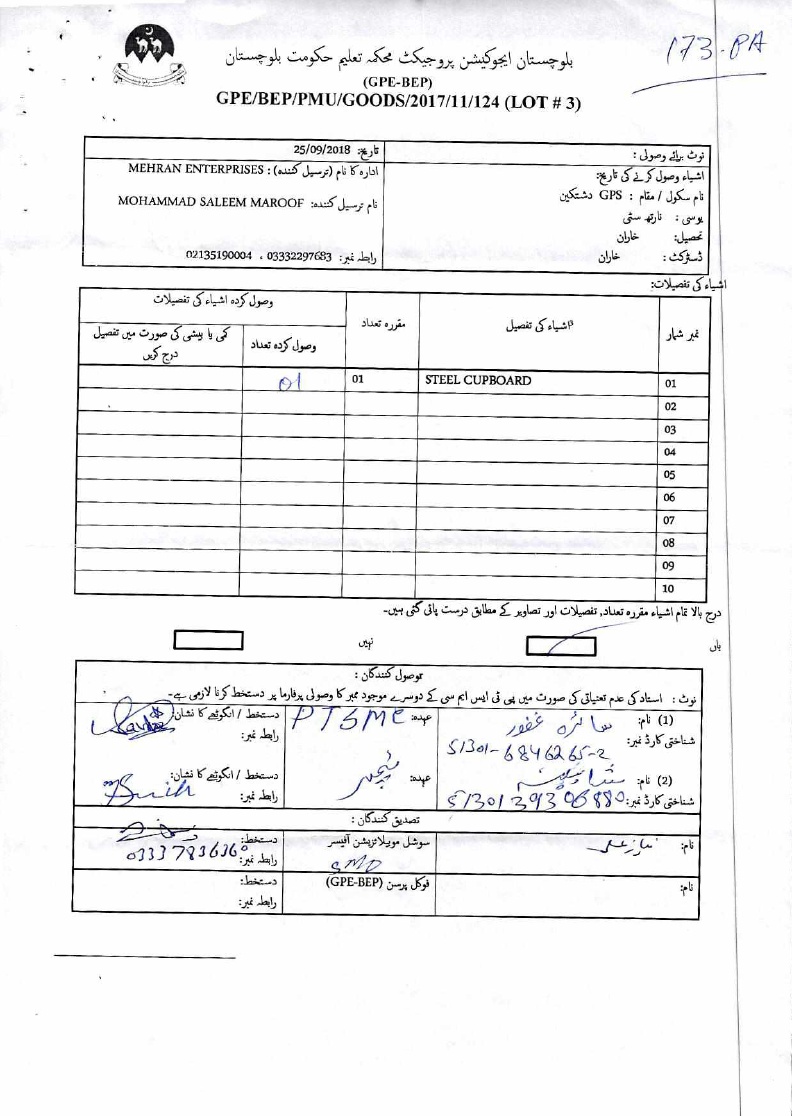 173-PA
بلوچستان ایجوکیشن پروجیکٹ محکمہ تعلیم حکومت بلوچستان
(GPE-BEP)
GPE/BEP/PMU/GOODS/2017/11/124 (LOT # 3)
نوٹ برائے وصولی :
تاریخ: 25/09/2018
اشیاء وصول کرنے کی تاریخ:
نام سکول / مقام : GPS دشتکین
یو سی : نارتھ سٹی
تحصیل: خاران
ڈسٹرکٹ : خاران
ادارہ کا نام (ترسیل کنندہ) : MEHRAN ENTERPRISES
نام ترسیل کنندہ: MOHAMMAD SALEEM MAROOF
رابطہ نمبر: 03332297683 ، 02135190004
اشیاء کی تفصیلات:
نمبر شمار اشیاء کی تفصیل مقررہ تعداد وصول کردہ اشیاء کی تفصیلات
وصول کردہ تعداد کمی یا بیشی کی صورت میں تفصیل درج کریں
01 STEEL CUPBOARD 01 01
02
03
04
05
06
07
08
09
10
درج بالا تمام اشیاء مقررہ تعداد, تفصیلات اور تصاویر کے مطابق درست پائی گئی ہیں-
ہاں نہیں
وصول کنندگان :
نوٹ : استاد کی عدم تعیناتی کی صورت میں پی ٹی ایس ایم سی کے دوسرے موجود ممبر کا وصولی پرفارما پر دستخط کرنا لازمی ہے-
(1) نام: سائرہ غفور عہدہ: PTSMC دستخط / انگوٹھے کا نشان:
شناختی کارڈ نمبر: 51301-6846265-2 رابطہ نمبر:
(2) نام: عہدہ: ٹیچر دستخط / انگوٹھے کا نشان:
شناختی کارڈ نمبر: 5130139306880 رابطہ نمبر:
تصدیق کنندگان :
نام: سوشل موبیلائزیشن آفیسر دستخط:
SMO رابطہ نمبر: 03337836360
نام: فوکل پرسن (GPE-BEP) دستخط:
رابطہ نمبر: